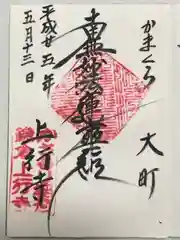 かまくら 大町
南無妙法蓮華経
平成廿五年
五月十三日
上行寺